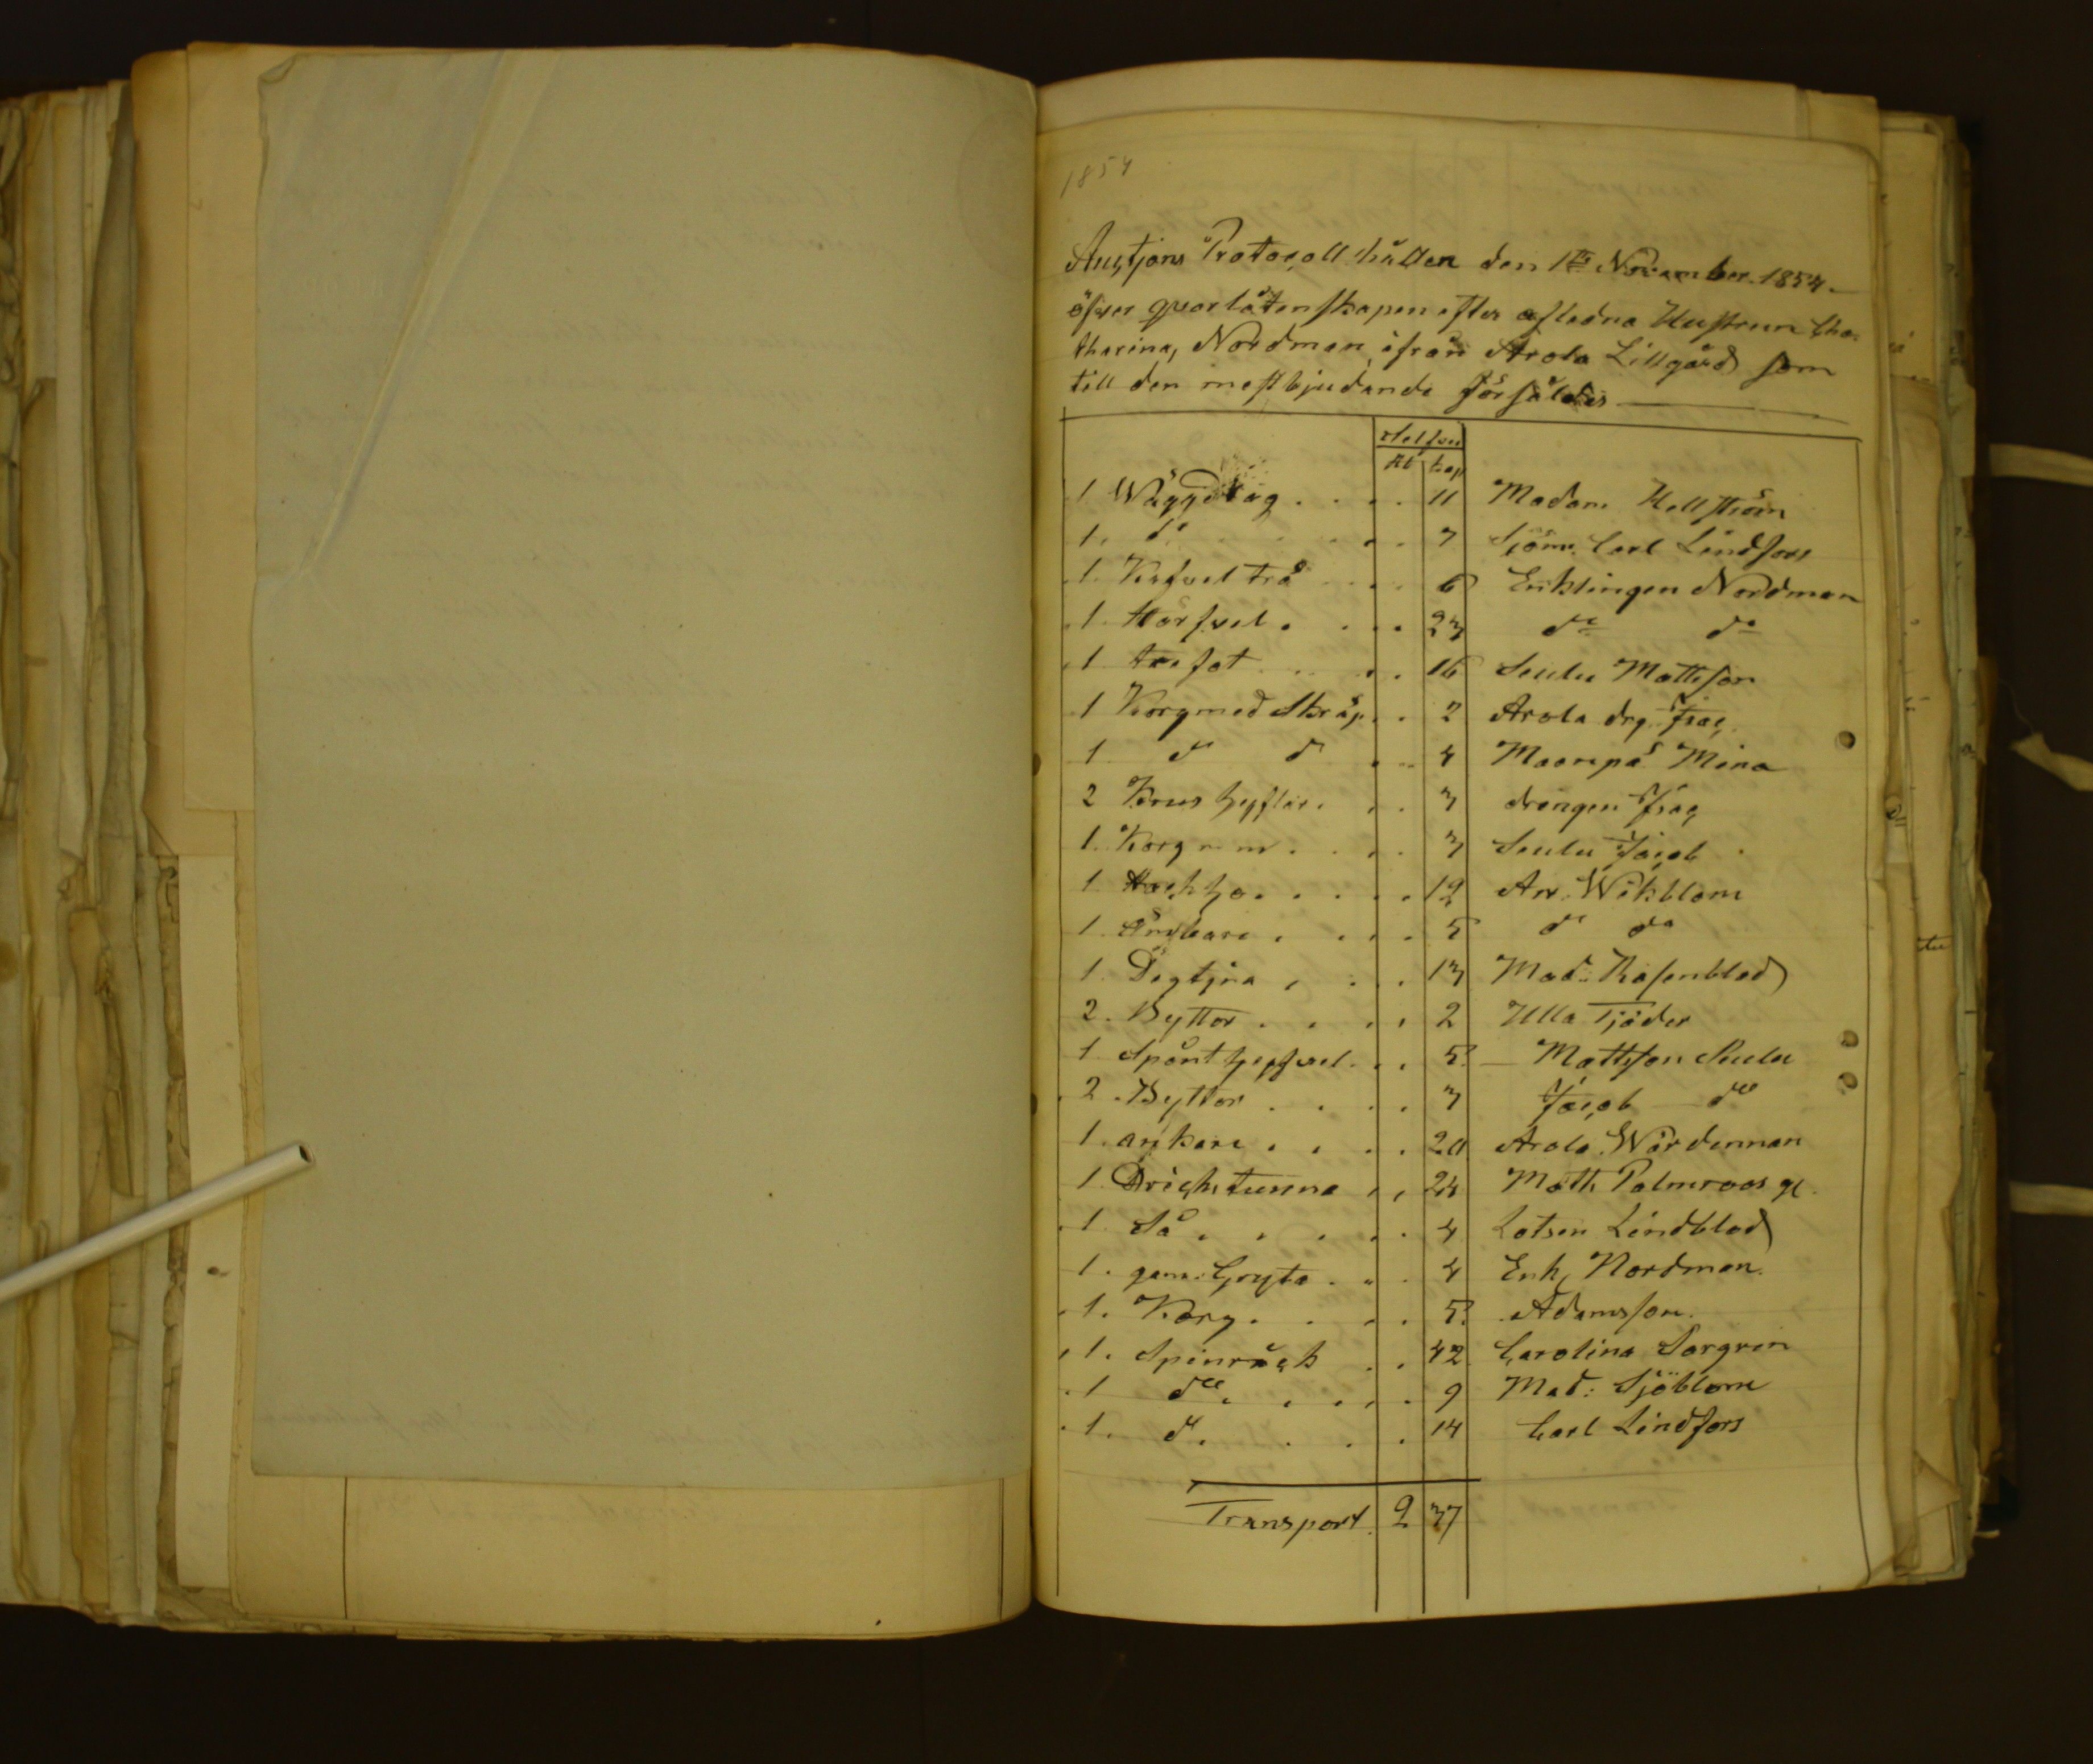 1854
Auctjons Protocoll hållen den 1ste November 1854.
öfver qvarlåtenskapen efter afledna Hustrun Cha-
tharina, Nordman, ifrån Arola Lillgård som
till den mestbjudande försåldes
Silfver
Rb kop
1 Wäggdrag .... 11 Madam Hellström
1. do .. 7 Sjöm. Carl Lindfors
1. Kafvel trä .. 6 Enklingen Nordman
1 Hörfvel . . .. 23 do do
1 trefot .... 16 Seulu Mattsson
1 Korg med Skräp .. 2 Arola drg. Isac
1 d d .. 4 Maaripä Mina
2 Krus hyflar. .. 3 drengen Isac
1. Korg m m . . .. 3 Seulu Jacob
1 Hackho. . . .. 12 An. Wikblom
1. Ämbare . . .. 5 d do
1. Degtjna , .. 13 Mad: Rosenblad
2. Byttor . . .. 2 Ulla Tjäder
1 Spånt hyfvel .. 5. Mattsson Seulu
2. Byttor . . .. 3 Jacob do
1. ankare . . .. 20 Arola Wärdinnan
1. Dricks tunna ,, 24 Matts Palmroos gl.
1. Så . . . .. 4 Lotsen Lindblad
1. gam: Gryta . .. 4 Enk, Nordman.
1. Korg. . .. 5. Adamsson.
1. Spinråck .. 42 Carolina Sorgren
1 do. . . .. 9 Mad: Sjöblom
1. d. . . . 14 Carl Lindfors
Transport. 2 37